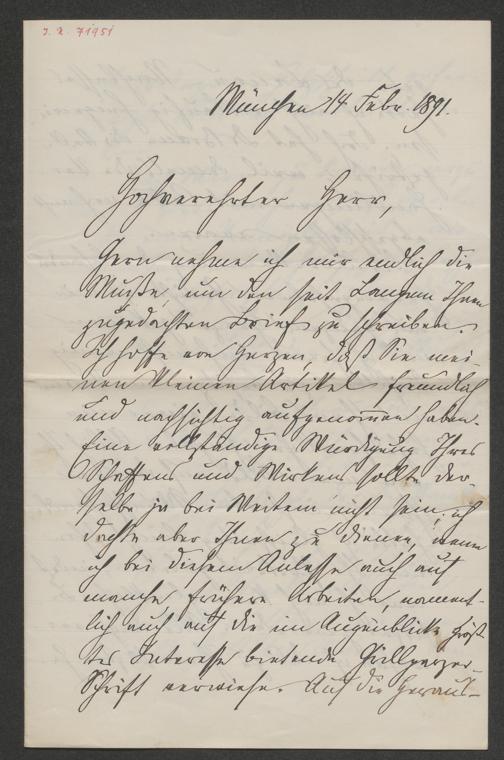 I. N. 71951
München 14 Febr. 1891.
Hochverehrter Herr,
Gern nehme ich mir endlich die
Muße, um den seit Langem Ihnen
zugedachten Brief zu schreiben.
Ich hoffe von Herzen, daß Sie mei-
nen kleinen Artikel freundlich
und nachsichtig aufgenommen haben.
Eine vollständige Würdigung Ihres
Schaffens und Wirkens sollte der-
selbe ja bei Weitem nicht sein, ich
dachte aber Ihnen zu dienen, wenn
ich bei diesem Anlasse auch auf
manche frühere Arbeiten, nament-
lich auch auf die im Augenblicke größ-
tes Interesse bietende Grillparzer-
Schrift verwiese. Auf die Heraus-